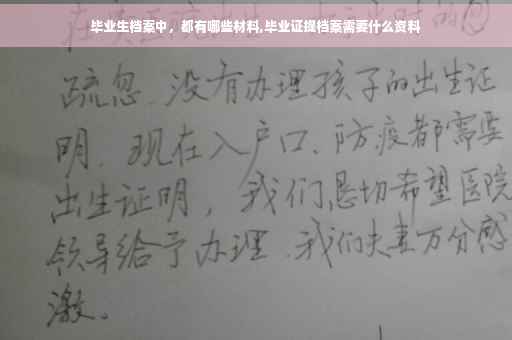 毕业生档案中，都有哪些材料,毕业证提档案需要什么资料
疏忽、没有办理孩子的出生证
明、现在入户口、防疫都需要
出生证明，我们恳切希望医院
领导给予办理、我们夫妻万分感
激。